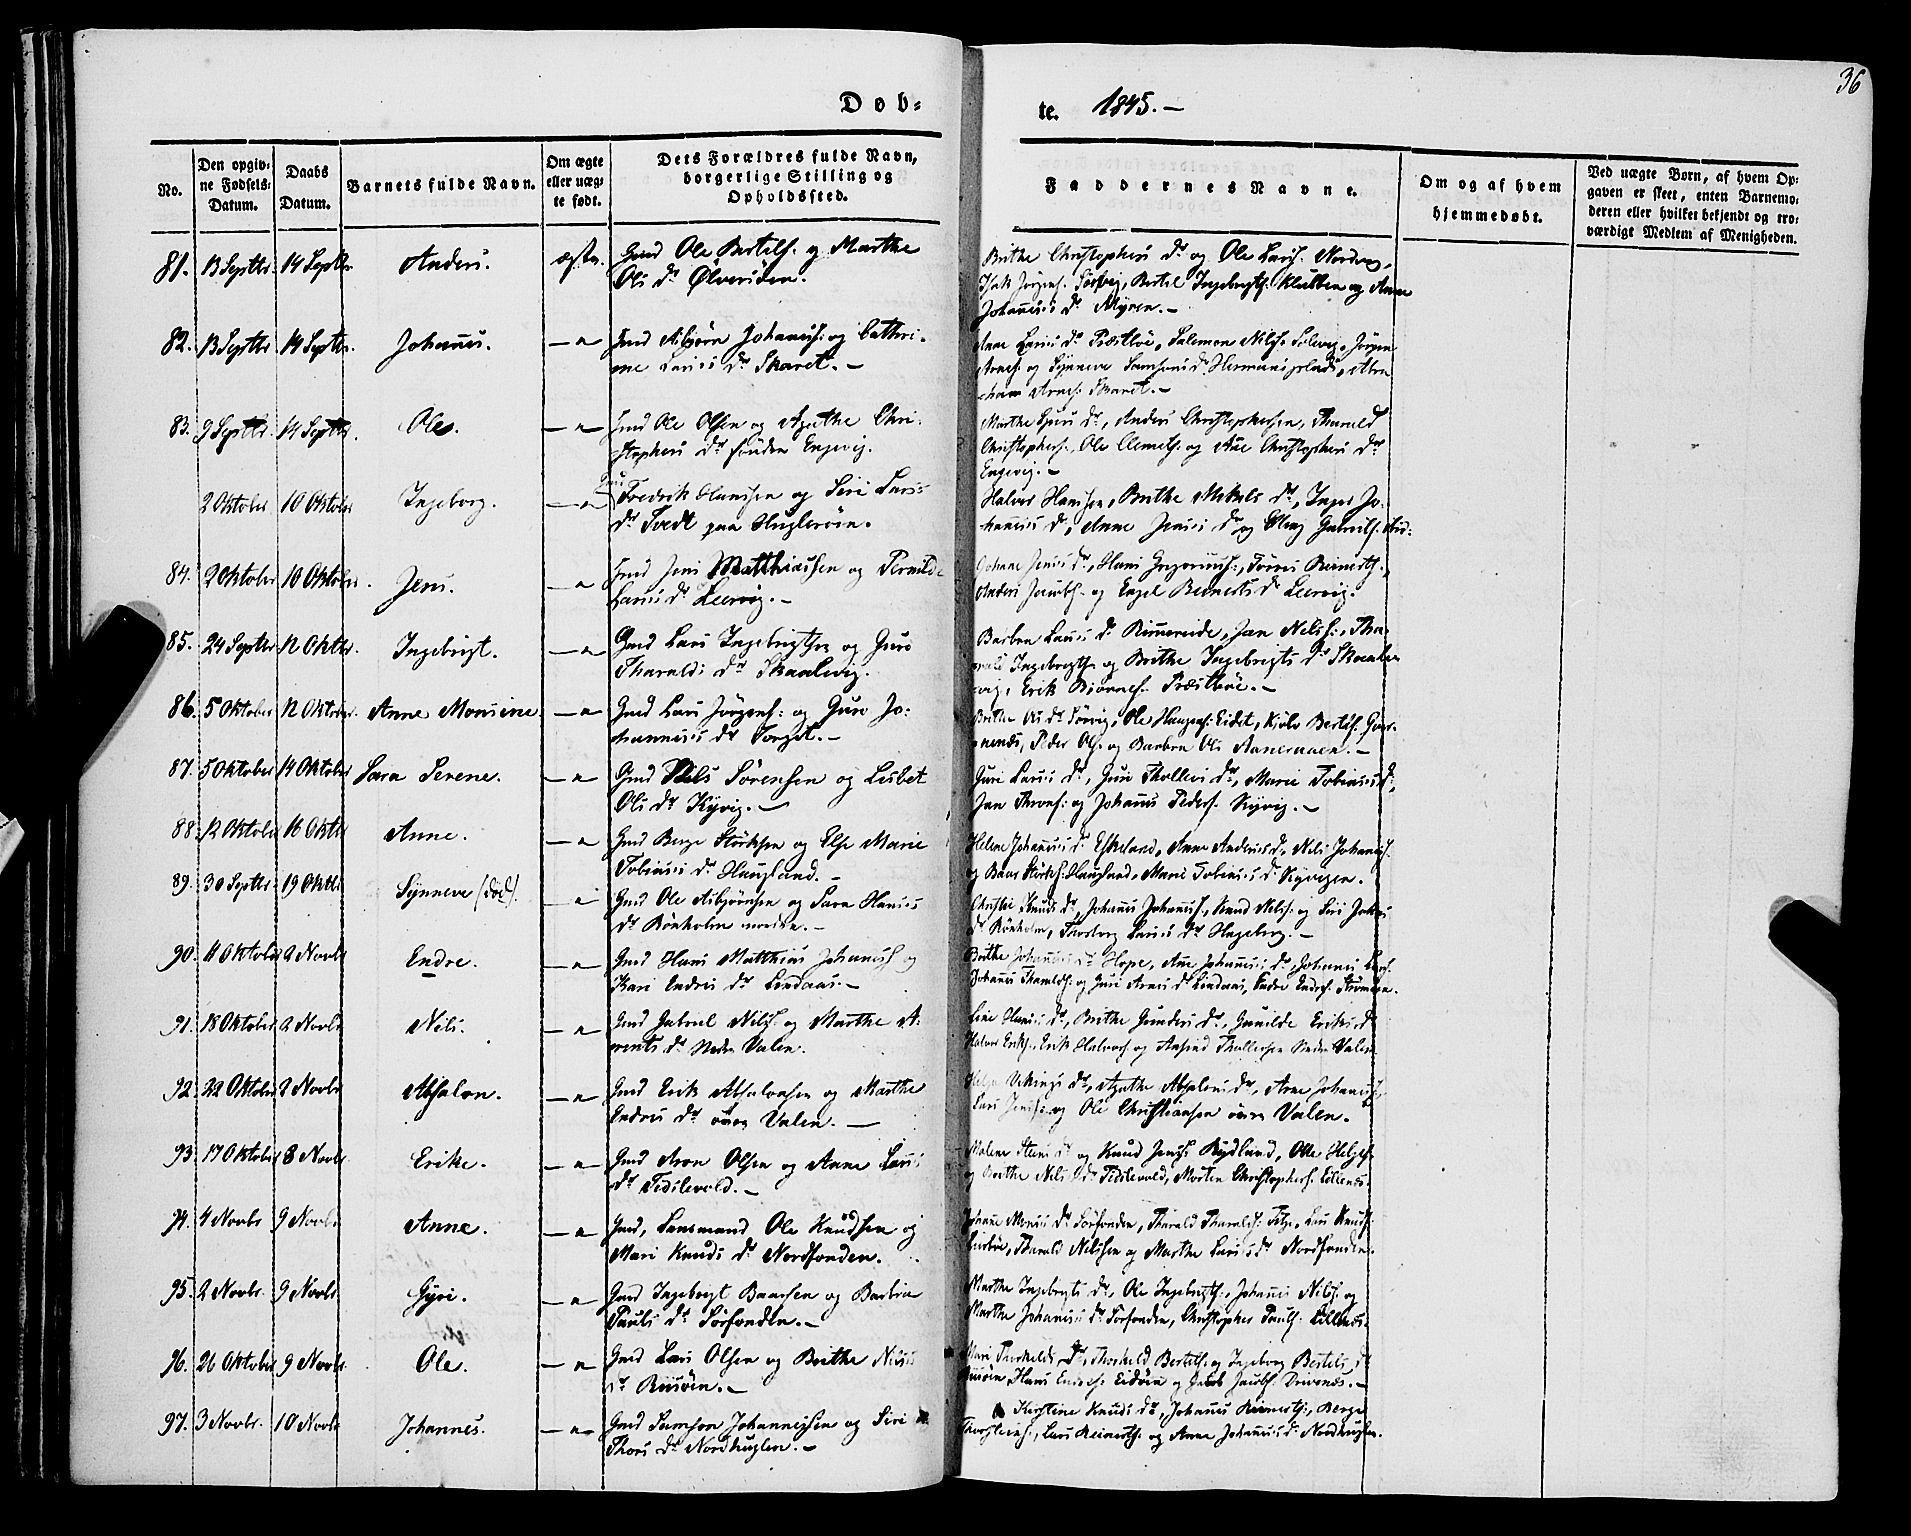 36
Døb-
te. 1845.-
No.
Den opgiv-
ne Fødsels-
Datum.
Daabs
Datum.
Barnets fulde Navn.
Om ægte
eller uæg-
te født.
Dets Forældres fulde Navn,
borgerlige Stilling og
Opholdssted.
Faddernes Navne.
Om og af hvem
hjemmedøbt.
Ved uægte Børn, af hvem Op-
gaven er skeet, enten Barnemo-
deren eller hvilket bekjendt og tro-
værdigt Medlem af Menigheden.
81. 13 Septbr. 14 Septbr. Anders. ægte. Gmd Ole Bertels. og Marthe
Ols Dr Ølversøen.
Brithe Christophers Dr og Ole Lars. Nordvig,
Isak Jørgens. Sørvig, Bertel Ingebrigts. Klubben og Anne
Johannes Dr Myren.-
82. 13 Septbr 14 Septbr. Johannes. -"- Gmd Asbjørn Johannes. og Cathri-
ne Larses Dr Skaret.-
Anne Larses Dr Præstbøe, Salemon Nils. Solevig, Jørgen
Arnes. og Synneve Samsons Dr Hermansplads, Abra
ham Arnes. Skaret.-
83. 9 Septbr. 14 Septbr. Ole. -"- Gmd Ole Olsen og Agathe Chri-
stophers Dr søndre Engevig.
Marthe Sjurs Dr, Anders Christophersen, Tharald
Christophers., Ole Clemets. og Ane Christophers Dr
Engevig.-
2 Oktober 10 Oktober Ingeborg. -"- Fredrik Hansen og Siri Lars
Dr Tvedt paa Huglerøen.
Halvor Hansen, Brithe Mikels Dr, Inger Jo-
hannes Dr, Anne Jenses Dr og Elling Gabriels.
84. 2 Oktober 10 Oktober. Jens. -"- Gmd Jens Matthiassen og Pernilde
Larses Dr Leervig.-
Johane Jenses Dr, Hans Gregorius., Torres Reinerts.,
Anders Jacobs. og Engel Reinerts Dr Leervig.
85. 24 Septbr 12 Oktbr. Ingebrigt. -"- Gmd Lars Ingebrigtsen og Guro
Tharalds Dr Skaalevig.
Barbra Larses Dr Rimmereide, Jan Nils., Tha-
rald Ingebrigts. og Brithe Ingebrigts Dr Skaale
vig, Erik Bjørnes. Præstbøe.-
86. 5 Oktober 12 Oktober. Anne Monsine -"- Gmd Lars Jørgens. og Guro Jo-
hannesses Dr Torget.-
Brithe Ols Dr Sørvig, Ole Haages. Eidet,
Peder Ols. og Barbra Ols
87. 5 Oktober 14 Oktober Sara Serene. -"- Gmd Nils Sørensen og Lisbet
Ols Dr Kyvig.-
Guri Larses Dr, Guri Thollevs Dr, Marie Tobiases Dr,
Jan Thrond. og Johannes Peders. Kyvig.-
88. 12 Oktober 16 Oktbr Anne. -"- Gmd Berge Størksen og Else Marie
Tobiases Dr Haugland.-
Helene Johannes Dr Eskeland, Anne Anders Dr, Nils Johannes.
og Baar Størks. Haugland, Marie Tobiases Dr Kyvigen.
89. 30 Septbr 19 Oktbr Synneve (død). -"- Gmd Ole Asbjørnsen og Sara Hanses
Dr Rönholm nordre.-
Christie Knuds Dr, Johannes Johannes., Knud Nils. og Siri Johans
Dr Rönholm, Thorborg Larses Dr Hageberg.-
90. 11 Oktober 2 Novbr Endre. -"- Gmd Hans Matthias Johannes. og
Kari Endres Dr Lindaas.-
Brithe Johannes Dr Hope, Ane Johannes Dr, Johannes Lars.
Johannes Tharalds. og Guri Arnes Dr Lindaas, Endre Endres. Strømøen.
91. 18 Oktober 2 Novbr Nils. -"- Gmd Gabriel Nils. og Marthe A-
rents Dr Nedre Valen.
Line Hanses Dr, Brithe Gunders Dr, Gunilde Eriks Dr
Halvor Eriks., Erik Halvors. og Aasind Thollefsen Nedre Valen
92. 22 Oktober 2 Novbr Absalon. -"- Gmd Erik Absalonsen og Marthe
Endres Dr øvre Valen.-
Vikings Dr, Agathe Absalons Dr, Arne Johannes.,
Lars Jens. og Ole Christiansen øvre Valen.
93. 17 Oktober 8 Novbr Erike. -"- Gmd Aron Olsen og Anne Larses
Dr Tedilevold.-
Malene Steens Dr og Knud Jens. Rydland, Ole Helges.
og Brithe Nils Dr Tedilevold, Morten Christophers. Lillenes.
94. 4 Novbr 9 Novbr Anne. -"- Gmd, Lensmand Ole Knudsen og
Mari Knuds Dr Nordfonden.
Johanne Monses Dr Sørfonden, Tharald Tharalds. Fitje, Lars Knuds.
Tharald Nilssen og Marthe Larses Dr Nordfonden.
95. 2 Novbr. 9 Novbr. Gyri. -"- Gmd Ingebrigt Baarsen og Barbra
Pauls Dr Sørfonden.-
Marthe Ingebrigts Dr, Ole Ingebrigts., Johannes Nils. og
Marthe Johannes Dr Sørfonden, Christopher Pauls. Lillenes.
96. 26 Oktober 9 Novbr. Ole. -"- Gmd Lars Olsen og Brithe Nilses
Dr Riisøen.-
Mari Thorkelds Dr, Thorkeld Bertels. og Ingeborg Bertels Dr
Riisøen Hans Endres. Eidøen og Jakob Jacobs. Drivenes.-
97. 3 Novbr. 10 Novbr Johannes. -"- Gmd Samson Johannessen og Siri
Thors Dr Nordhuglen.-
Kirstine Knuds Dr, Johannes Reinerts., Berge
Thorsteins., Lars Reinerts. og Anne Johannes Dr Nordhuglen.